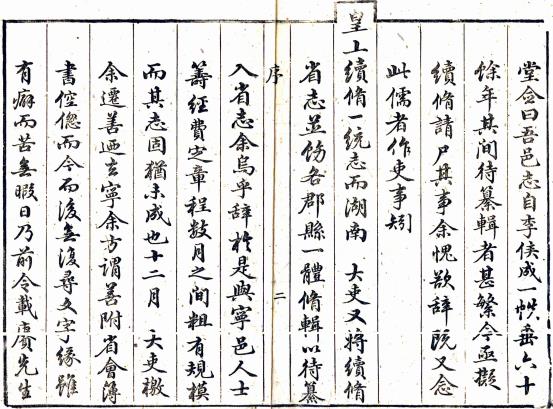 堂僉曰吾邑志自李侯成一帙垂六十
餘年其間待纂輯者甚繁今亟擬
續脩請尸其事余愧欲辞旣又念
此儒者作吏事矧
皇上續脩一統志而湖南 大吏又將續脩
省志並飭各郡縣一體脩輯以待纂
序
二
入省志余烏乎辞於是與寧邑人士
籌經費定章程数月之間粗有規模
而其志固猶未成也十二月 大吏檄
余遷善迺去寧余方謂善附省會簿
書倥偬而今而後無復尋文字緣雖
有癖而苦無暇日乃前令載賡先生